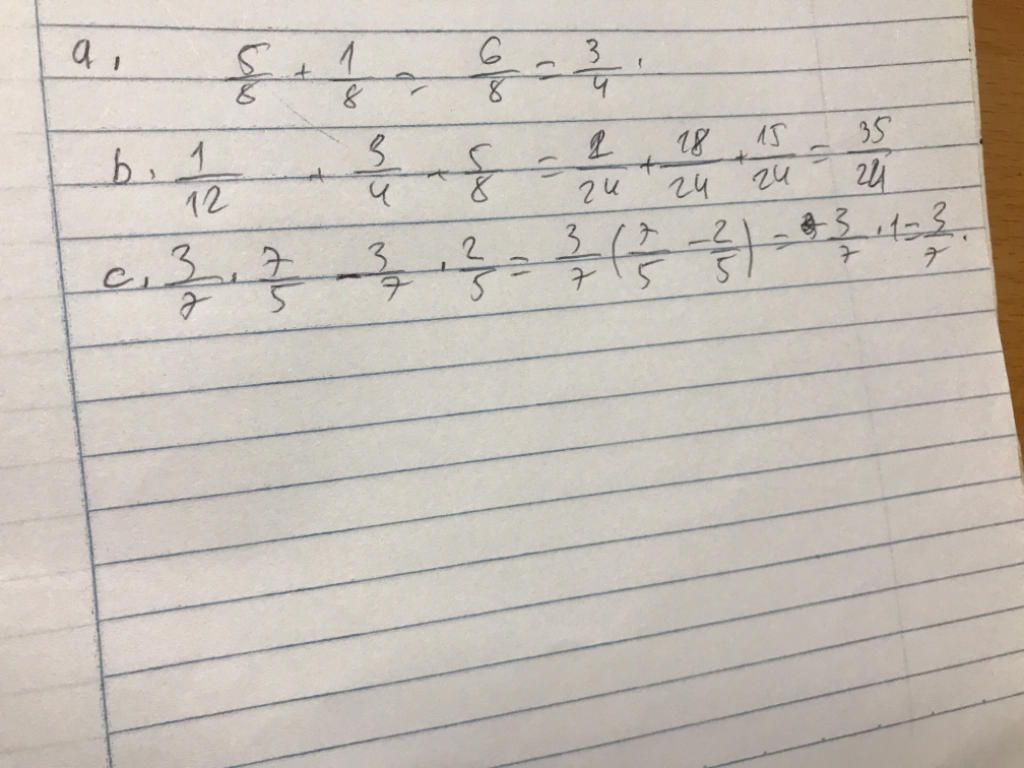 a, 5/8 + 1/8 = 6/8 = 3/4.
b. 1/12 + 3/4 + 5/8 = 2/24 + 18/24 + 15/24 = 35/24
c. 3/7 . 7/5 - 3/7 . 2/5 = 3/7 (7/5 - 2/5) = 3/7 . 1 = 3/7.